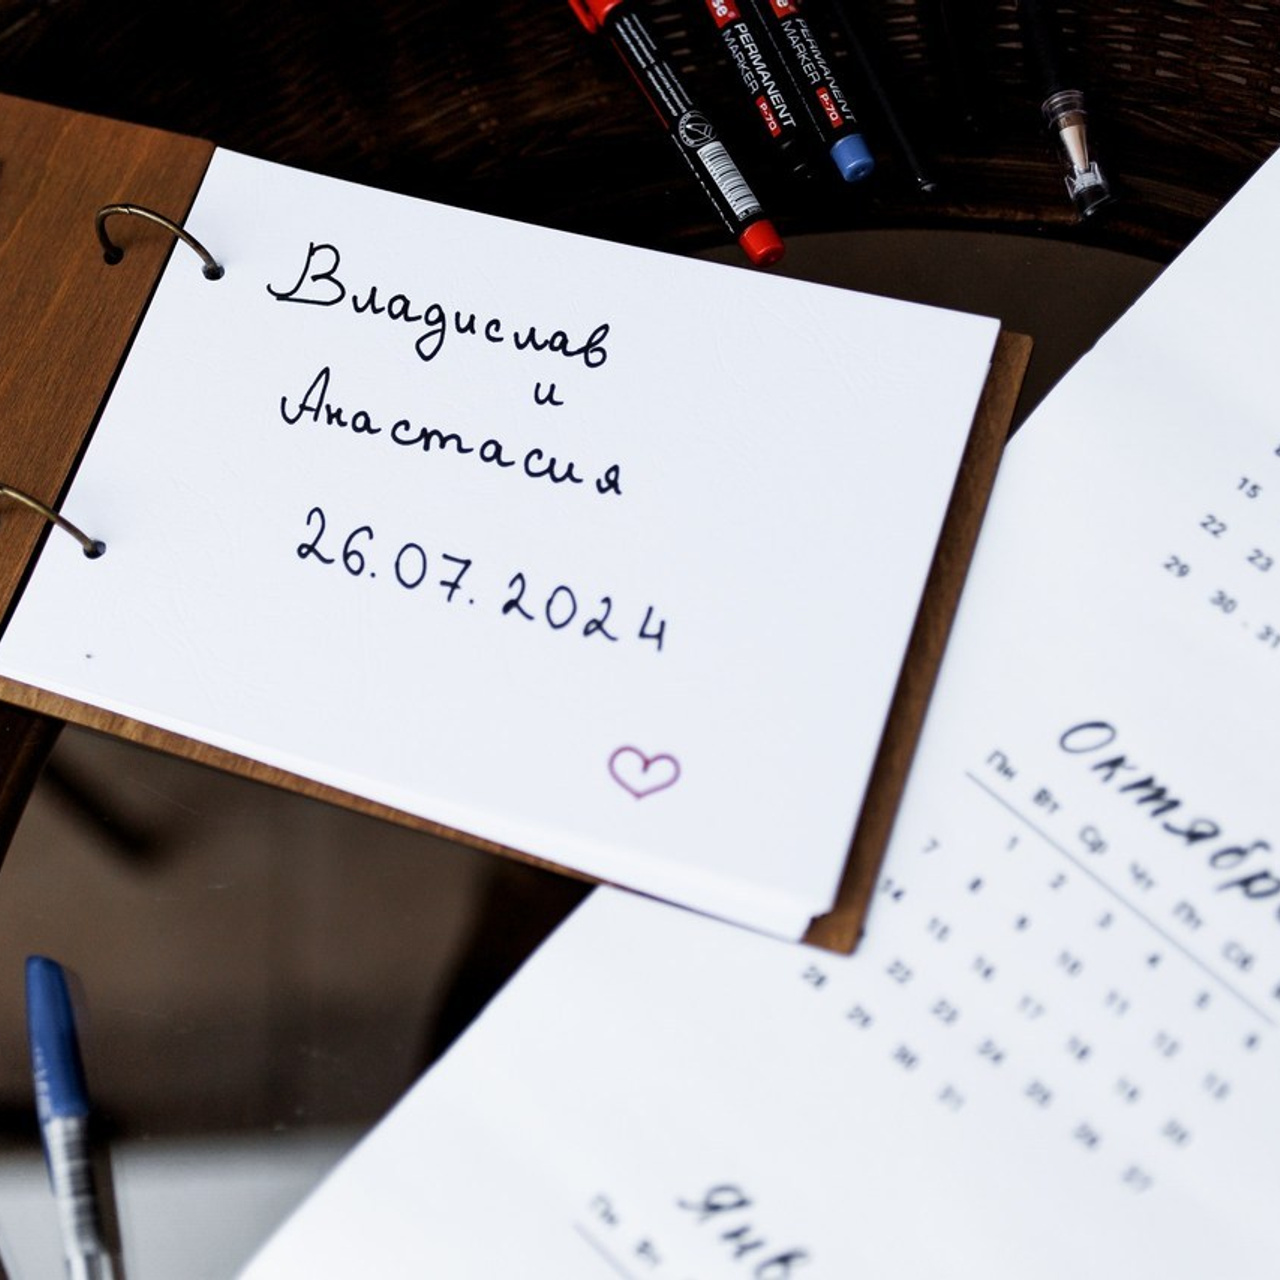 Владислав
и
Анастасия
26.07.2024
PERMANENT
MARKER
P-70
PERMANENT
MARKER
P-70
15
22 23
29 30 31
Октябр
Пн Вт Ср Чт Пт Сб
1 2 3 4 5 6
7 8 9 10 11 12 13
14 15 16 17 18
22 23 24 25 26 27
28 29 30 31
Янв
Пн Вт